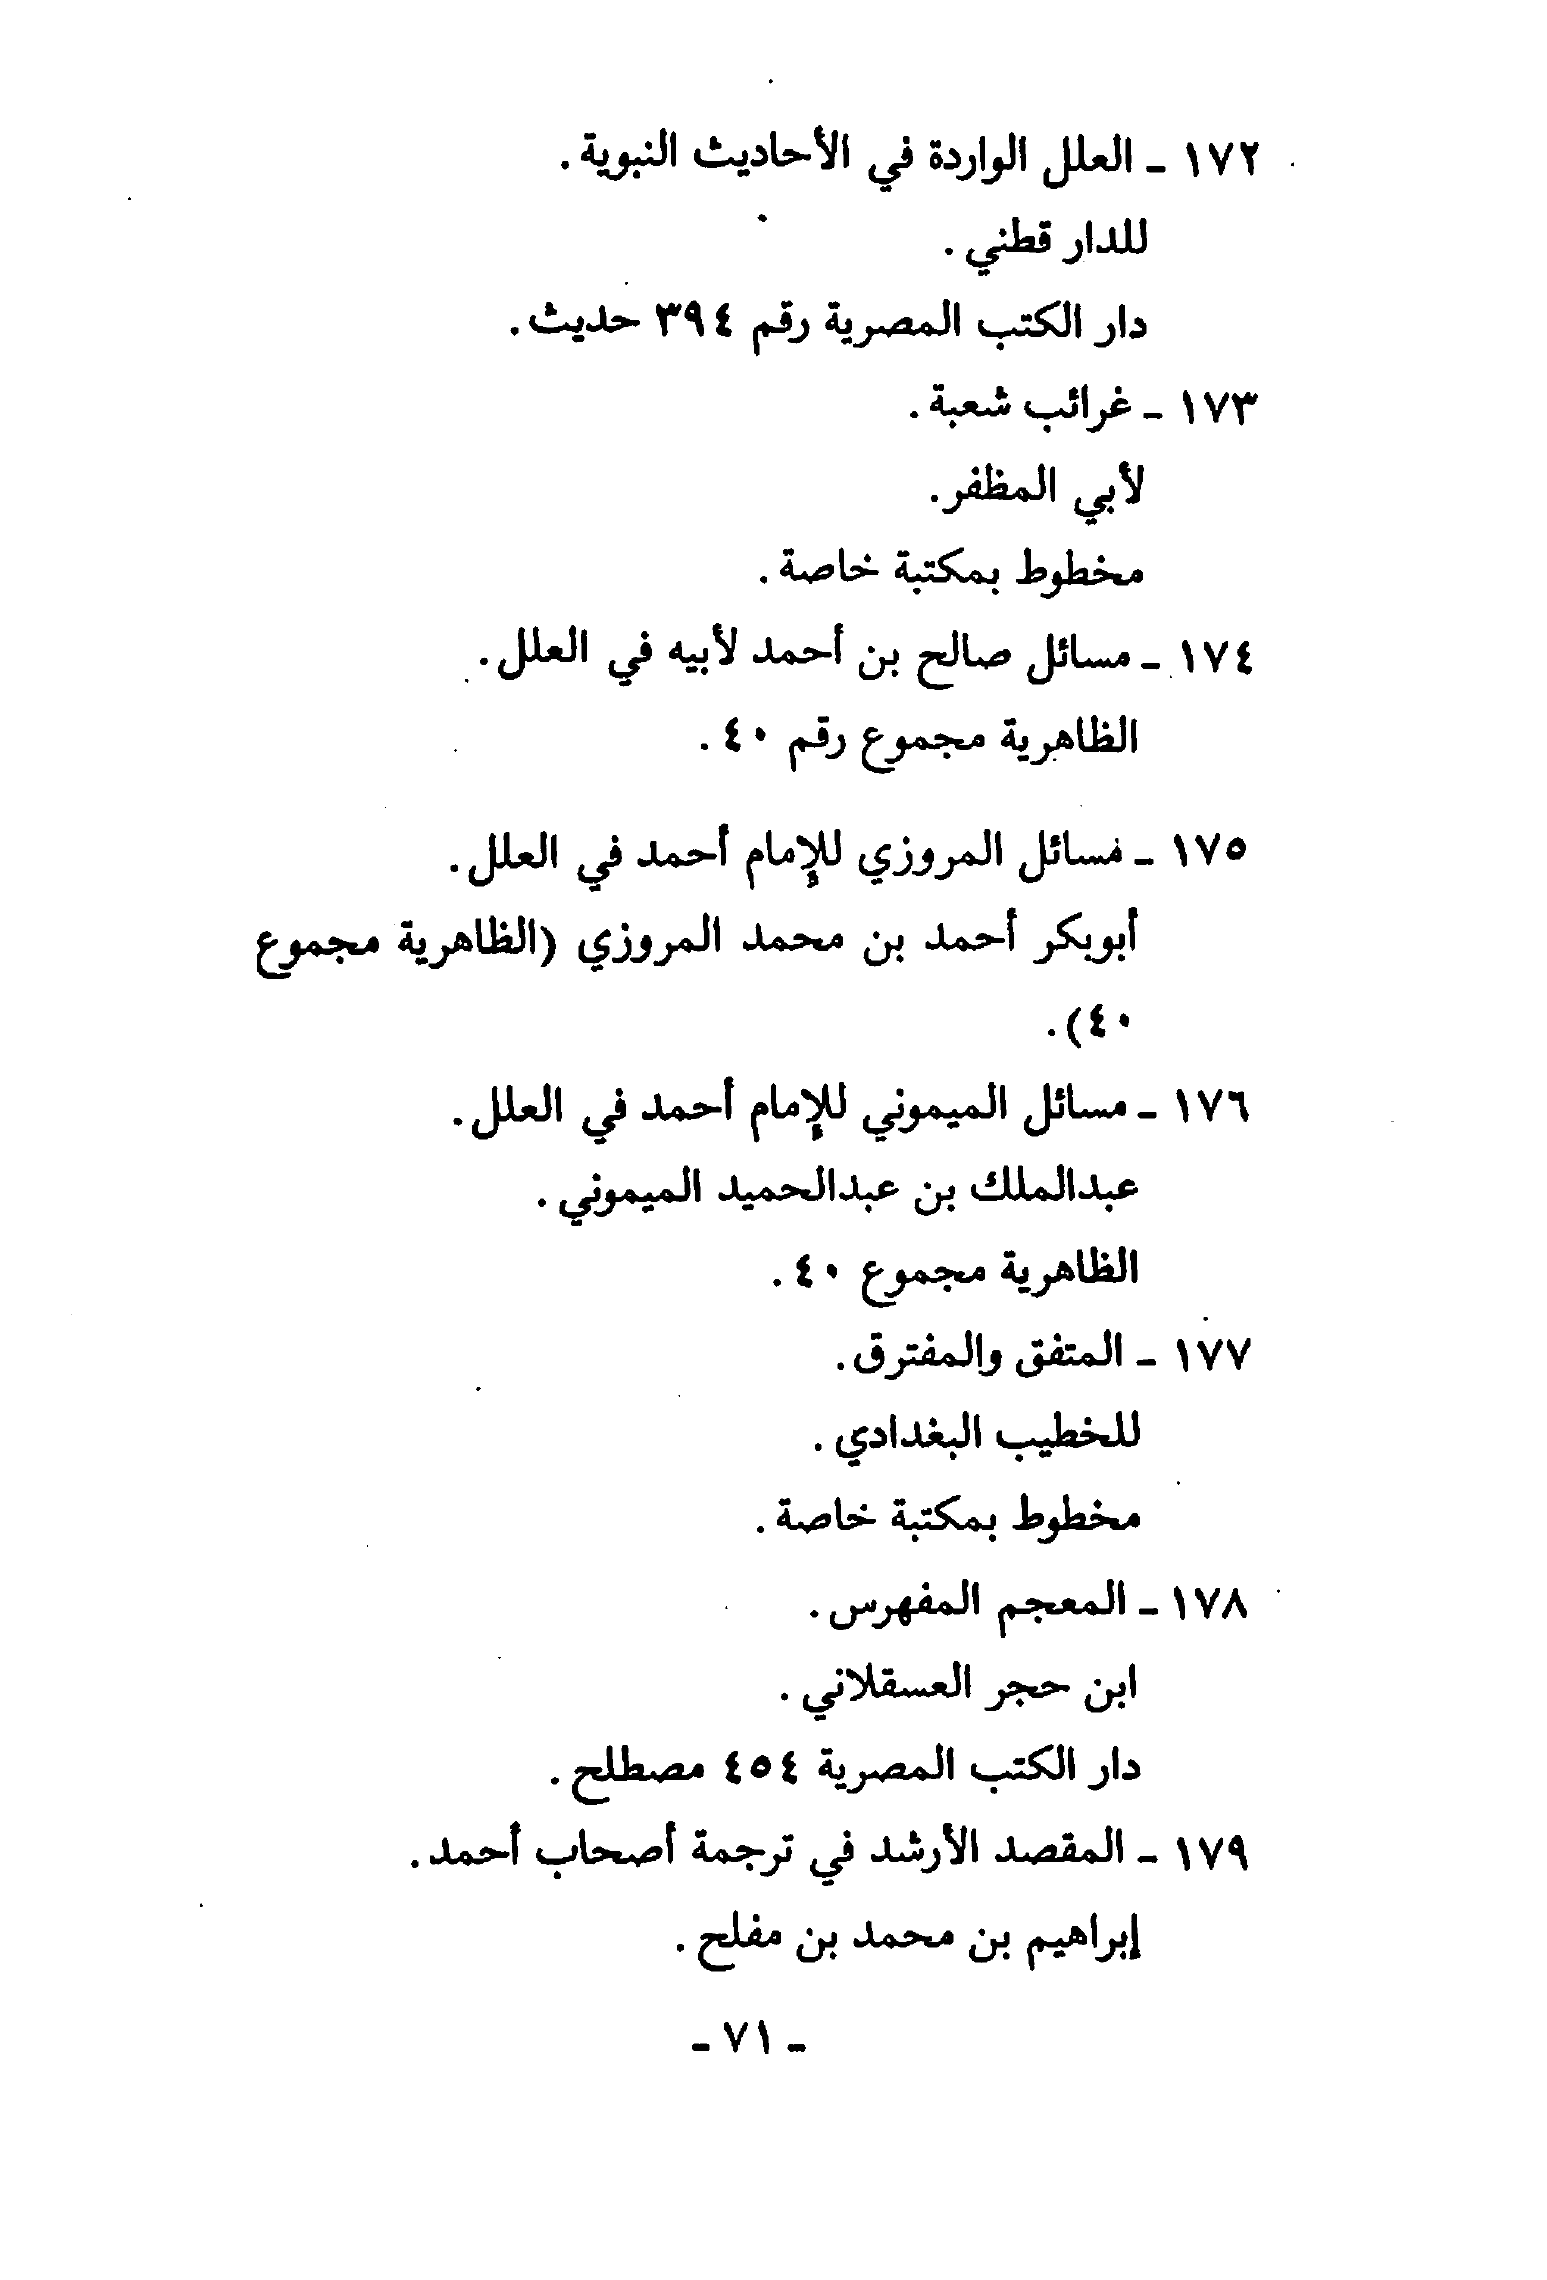 ١٧٢ - العلل الواردة في الأحاديث النبوية.
للدار قطني.
دار الكتب المصرية رقم ٣٩٤ حديث.
١٧٣ - غرائب شعبة.
لأبي المظفر.
مخطوط بمكتبة خاصة.
١٧٤ - مسائل صالح بن أحمد لأبيه في العلل.
الظاهرية مجموع رقم ٤٠.
١٧٥ - مسائل المروزي للإمام أحمد في العلل.
أبوبكر أحمد بن محمد المروزي (الظاهرية مجموع
٤٠).
١٧٦ - مسائل الميموني للإمام أحمد في العلل.
عبدالملك بن عبدالحميد الميموني.
الظاهرية مجموع ٤٠.
١٧٧ - المتفق والمفترق.
للخطيب البغدادي.
مخطوط بمكتبة خاصة.
١٧٨ - المعجم المفهرس.
ابن حجر العسقلاني.
دار الكتب المصرية ٤٥٤ مصطلح.
١٧٩ - المقصد الأرشد في ترجمة أصحاب أحمد.
إبراهيم بن محمد بن مفلح.
- ٧١ -